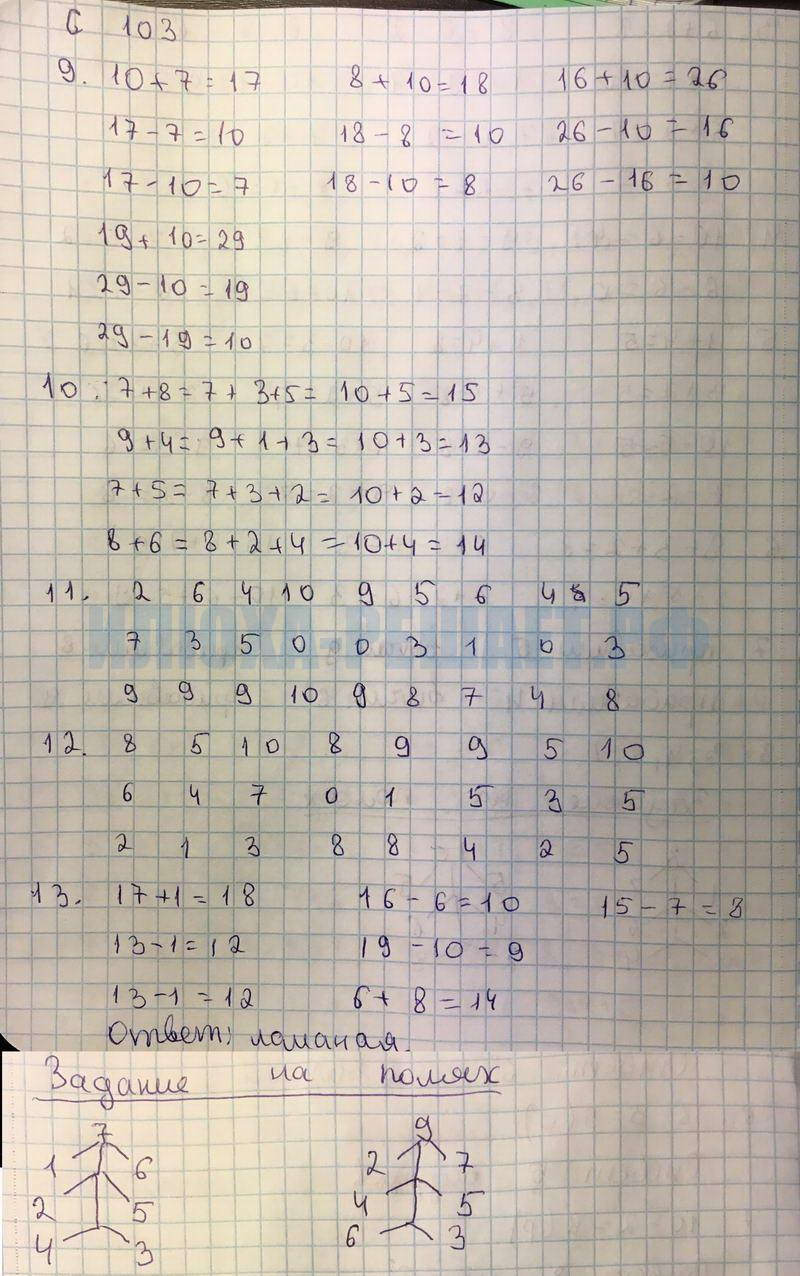 С 103
9. 10+7=17 8+10=18 16+10=26
17-7=10 18-8=10 26-10=16
17-10=7 18-10=8 26-16=10
19+10=29
29-10=19
29-19=10
10. 7+8=7+3+5=10+5=15
9+4=9+1+3=10+3=13
7+5=7+3+2=10+2=12
8+6=8+2+4=10+4=14
11. 2 6 4 10 9 5 6 4 5
ИЛЮХА-РЕШАЕТ.РФ
7 3 5 0 0 3 1 0 3
9 9 9 10 9 8 7 4 8
12. 8 5 10 8 9 9 5 10
6 4 7 0 1 5 3 5
2 1 3 8 8 4 2 5
13. 17+1=18 16-6=10 15-7=8
13-1=12 19-10=9
13-1=12 6+8=14
Ответ: ломаная.
Задание на полях
7 9
1 6 2 7
2 5 4 5
4 3 6 3